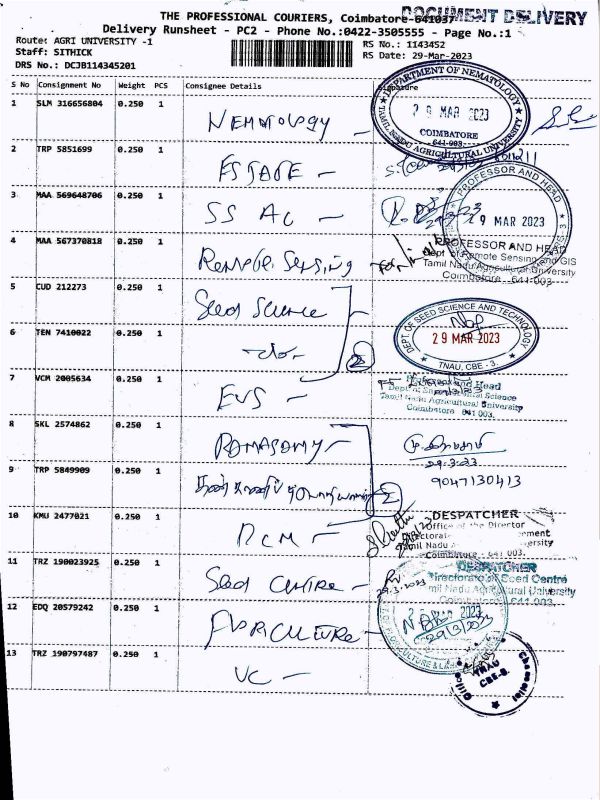 THE PROFESSIONAL COURIERS, Coimbatore-641037
DOCUMENT DELIVERY
Delivery Runsheet - PC2 - Phone No.:0422-3505555 - Page No.:1
Route: AGRI UNIVERSITY -1
RS No.: 1143452
Staff: SITHICK
RS Date: 29-Mar-2023
DRS No.: DCJB114345201
S No Consignment No Weight PCS Consignee Details Signature
1 SLM 316656804 0.250 1 NEMATOLOGY -
DEPARTMENT OF NEMATOLOGY
29 MAR 2023
COIMBATORE
641-003.
TAMIL NADU AGRICULTURAL UNIVERSITY
2 TRP 5851699 0.250 1 ESTATE -
3 MAA 569648706 0.250 1 SS AC -
PROFESSOR AND HEAD
29 MAR 2023
4 MAA 567370818 0.250 1 Remote Sensing
PROFESSOR AND HEAD
Dept of Remote Sensing and GIS
Tamil Nadu Agricultural University
Coimbatore - 641 003
5 CUD 212273 0.250 1 Seed Science
6 TEN 7410022 0.250 1 -do- 2
DEPT OF SEED SCIENCE AND TECHNOLOGY
29 MAR 2023
TNAU, CBE - 3.
7 VCM 2005634 0.250 1 EVS -
Professor and Head
Tamil Nadu Agricultural University
Coimbatore 641 003.
8 SKL 2574862 0.250 1 RAMASAMY -
29.3.23
9 TRP 5849909 0.250 1 2
9047130413
10 KMU 2477021 0.250 1
DESPATCHER
Office of the Director
Coimbatore - 641 003.
11 TRZ 190023925 0.250 1 Seed Centre -
29.3.2023
DESPATCHER
Directorate of Seed Centre
Tamil Nadu Agricultural University
Coimbatore 641 003.
12 EDQ 20579242 0.250 1 AGRICULTURE -
29/3/2023
13 TRZ 190797487 0.250 1 VC -
TNAU
CBE-3.